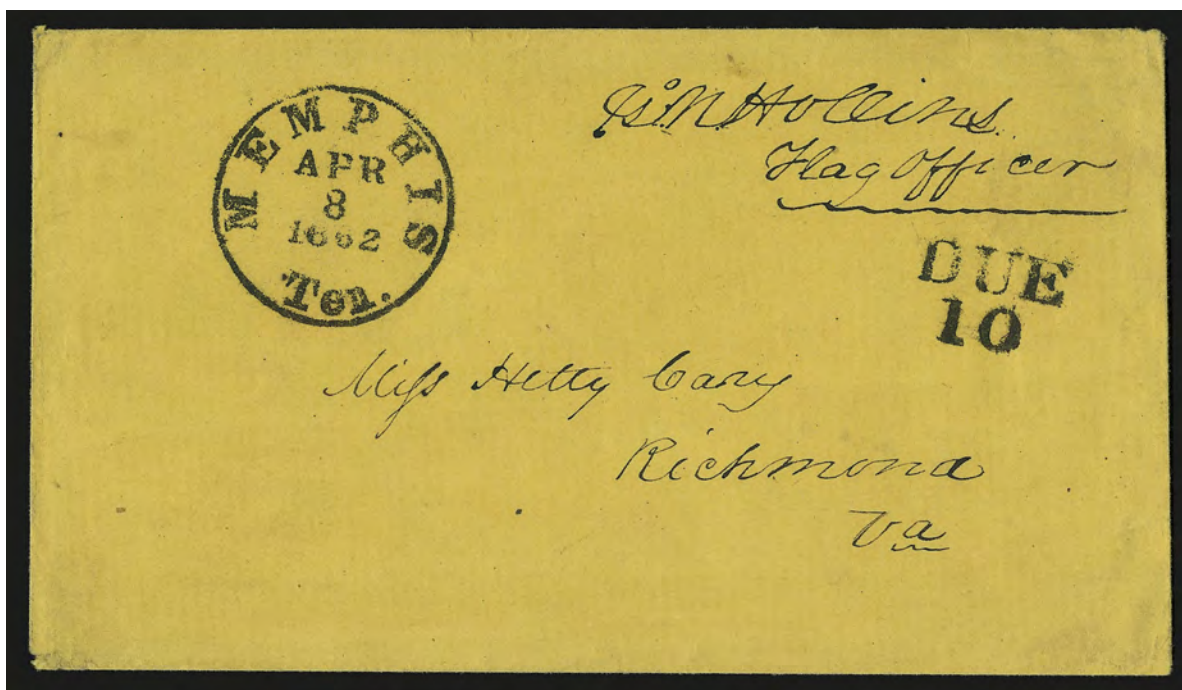 MEMPHIS
APR
8
1862
Ten.
Geo N Hollins
Flag Officer
DUE
10
Miss Hetty Cary
Richmond
Va